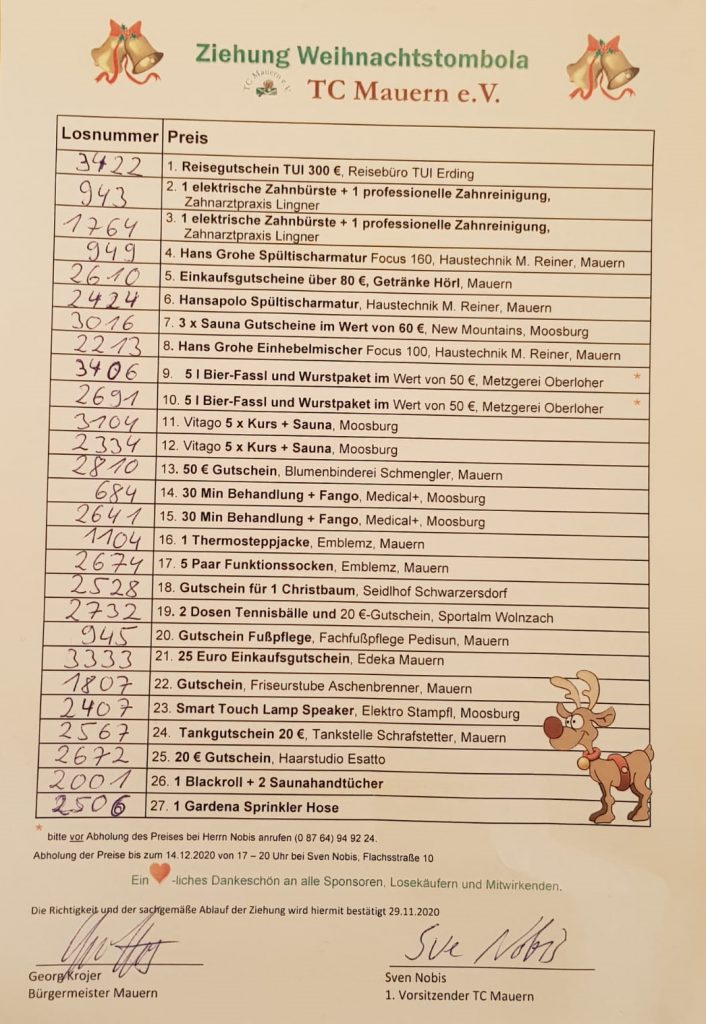 Ziehung Weihnachtstombola
TC Mauern e.V.
TC Mauern e.V.
Losnummer Preis
3422 1. Reisegutschein TUI 300 €, Reisebüro TUI Erding
943 2. 1 elektrische Zahnbürste + 1 professionelle Zahnreinigung,
Zahnarztpraxis Lingner
1764 3. 1 elektrische Zahnbürste + 1 professionelle Zahnreinigung,
Zahnarztpraxis Lingner
949 4. Hans Grohe Spültischarmatur Focus 160, Haustechnik M. Reiner, Mauern
2610 5. Einkaufsgutscheine über 80 €, Getränke Hörl, Mauern
2424 6. Hansapolo Spültischarmatur, Haustechnik M. Reiner, Mauern
3016 7. 3 x Sauna Gutscheine im Wert von 60 €, New Mountains, Moosburg
2213 8. Hans Grohe Einhebelmischer Focus 100, Haustechnik M. Reiner, Mauern
3406 9. 5 l Bier-Fassl und Wurstpaket im Wert von 50 €, Metzgerei Oberloher *
2691 10. 5 l Bier-Fassl und Wurstpaket im Wert von 50 €, Metzgerei Oberloher *
3104 11. Vitago 5 x Kurs + Sauna, Moosburg
2334 12. Vitago 5 x Kurs + Sauna, Moosburg
2810 13. 50 € Gutschein, Blumenbinderei Schmengler, Mauern
684 14. 30 Min Behandlung + Fango, Medical+, Moosburg
2641 15. 30 Min Behandlung + Fango, Medical+, Moosburg
1104 16. 1 Thermosteppjacke, Emblemz, Mauern
2674 17. 5 Paar Funktionssocken, Emblemz, Mauern
2528 18. Gutschein für 1 Christbaum, Seidlhof Schwarzersdorf
2732 19. 2 Dosen Tennisbälle und 20 €-Gutschein, Sportalm Wolnzach
945 20. Gutschein Fußpflege, Fachfußpflege Pedisun, Mauern
3333 21. 25 Euro Einkaufsgutschein, Edeka Mauern
1807 22. Gutschein, Friseurstube Aschenbrenner, Mauern
2407 23. Smart Touch Lamp Speaker, Elektro Stampfl, Moosburg
2567 24. Tankgutschein 20 €, Tankstelle Schrafstetter, Mauern
2672 25. 20 € Gutschein, Haarstudio Esatto
2001 26. 1 Blackroll + 2 Saunahandtücher
2506 27. 1 Gardena Sprinkler Hose
* bitte vor Abholung des Preises bei Herrn Nobis anrufen (0 87 64) 94 92 24.
Abholung der Preise bis zum 14.12.2020 von 17 – 20 Uhr bei Sven Nobis, Flachsstraße 10
Ein -liches Dankeschön an alle Sponsoren, Losekäufern und Mitwirkenden.
Die Richtigkeit und der sachgemäße Ablauf der Ziehung wird hiermit bestätigt 29.11.2020
Sve Nobis
Georg Krojer Sven Nobis
Bürgermeister Mauern 1. Vorsitzender TC Mauern